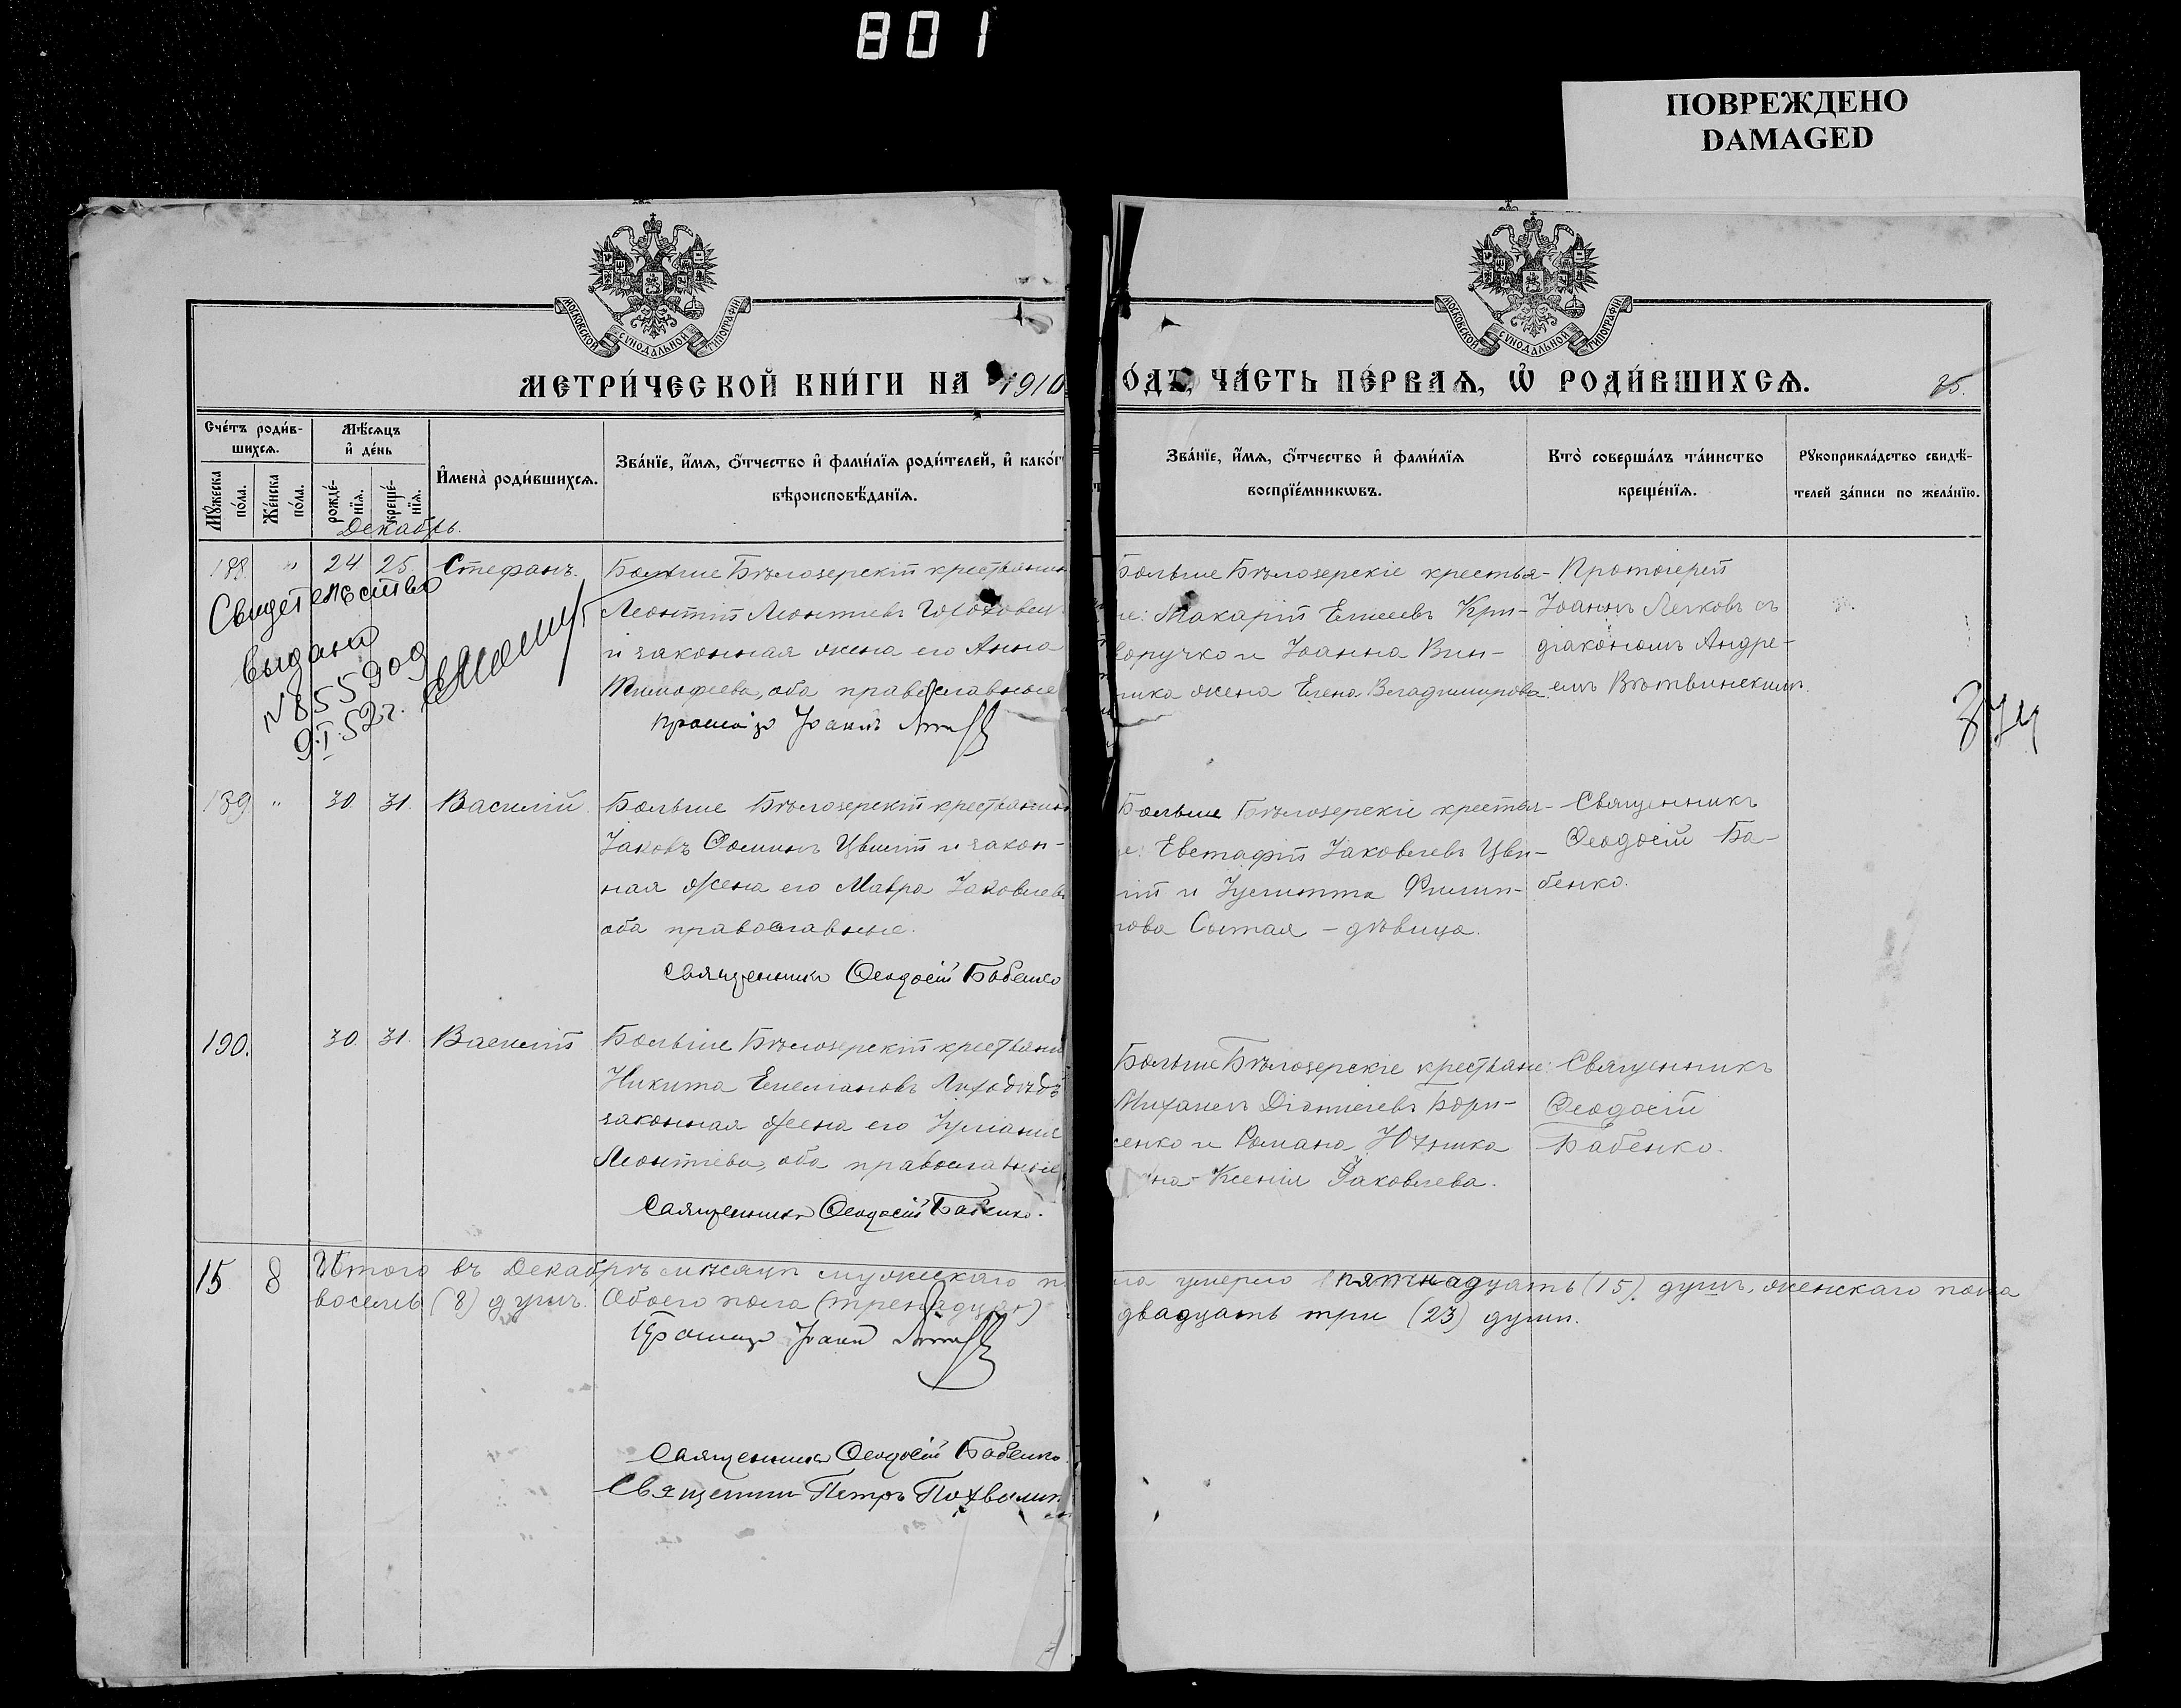 801
ПОВРЕЖДЕНО
DAMAGED
МОСКОВСКОЙ СѴНОДАЛЬНОЙ ТИПОГРАФІИ
МОСКОВСКОЙ СѴНОДАЛЬНОЙ ТИПОГРАФІИ
МЕТРИ́ЧЕСКОЙ КНИ́ГИ НА 1910
О́ДЪ, ЧА́СТЬ ПЕ́РВАѦ, Ѡ҆ РОДИ́ВШИХСѦ.
85.
Сче́тъ роди́в-
шихсѧ.
Мѣ́сѧцъ
и҆ де́нь
Мꙋ́жеска
по́ла.
Же́нска
по́ла.
рожде́-
нїѧ.
креще́-
нїѧ.
И҆мена̀ роди́вшихсѧ.
Зва́нїе, и҆́мѧ, ѻ҆́тчество и҆ фами́лїѧ роди́телей, и҆ како́г
вѣроисповѣ́данїѧ.
Зва́нїе, и҆́мѧ, ѻ҆́тчество и҆ фами́лїѧ
воспрїе́мникѡвъ.
Кто̀ соверша́лъ та́инство
креще́нїѧ.
Рꙋкоприкла́дство свидѣ́-
телей за́писи по жела́нїю.
Декабрь.
188 " 24 25. Стефанъ.
Больше Бѣлозерскій крестьянин
Леонтій Леонтіевъ
и законная жена его Анна
Тимофеева, оба православные
Іоаннъ
Свидетельство
выдано
N 855900
9.I.52г.
Больше Бѣлозерскіе крестья-
не: Макарій Елисеевъ Кри-
воручко и Іоанна Вин-
ника жена Елена Владимирова.
Протоіерей
Іоаннъ Легковъ съ
діакономъ Андре-
емъ Вѣтвинскимъ.
374
189 " 30. 31. Василій.
Больше Бѣлозерскій крестьянин
Іаковъ Фоминъ Цвилій и закон-
ная жена его Мавра Іаковлева
оба православные.
Священникъ Ѳеодосій Бабенко
Больше Бѣлозерскіе крестья-
не: Евстафій Іаковлевъ Цви-
лій и Іулитта Филип-
пова Сытая - дѣвица.
Священникъ
Ѳеодосій Ба-
бенко.
190. 30 31. Василій
Больше Бѣлозерскій крестьяни
Никита Емельяновъ Лиходѣдъ
законная жена его Іуліанія
Леонтіева, оба православные
Священникъ Ѳеодосій Бабенко.
Больше Бѣлозерскіе крестьяне:
Михаилъ Даніилевъ Бори-
сенко и Романа
на Ксенія Іаковлева.
Священникъ
Ѳеодосій
Бабенко.
15 8 Итого въ Декабрѣ мѣсяцѣ мужескаго по
ла умерло пятнадцать (15) душъ, женскаго пола
восемь (8) душъ. Обоего пола
двадцать три (23) души.
Іоаннъ
Священникъ Ѳеодосій Бабенко.
Священникъ Петръ